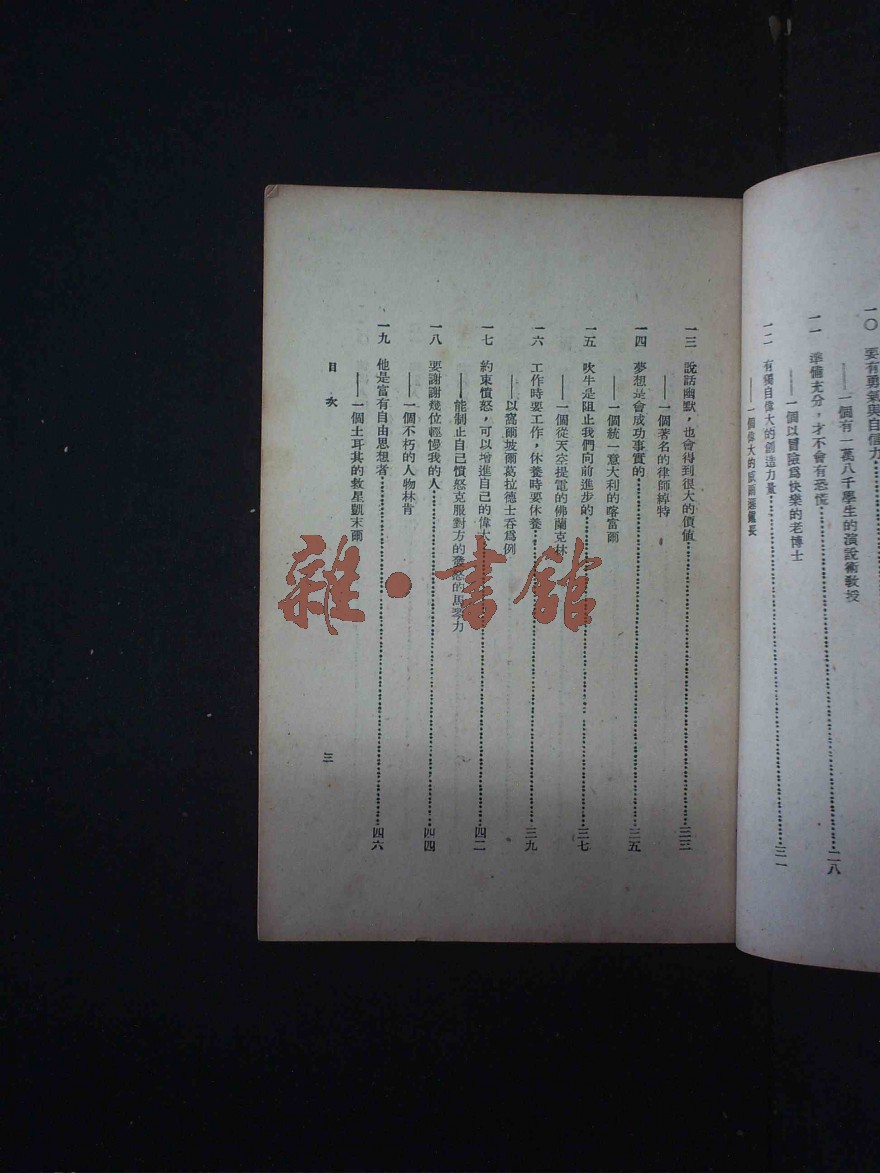 一〇 要有勇氣與自信力
——一個有一萬八千學生的演說術教授
一一 準備充分，才不會有恐慌……二八
——一個以冒險爲快樂的老博士
一二 有獨自偉大的創造力量……三一
——一個偉大的 長
一三 說話幽默，也會得到很大的價值……三三
——一個著名的律師綽特
一四 夢想是會成功事實的……三五
——一個統一意大利的喀富爾
一五 吹牛是阻止我們向前進步的……三七
——一個從天空提電的佛蘭克林
一六 工作時要工作，休養時要休養……三九
——以窩爾坡爾葛拉德士吞爲例
一七 約束憤怒，可以增進自己的偉大……四二
——能制止自己憤怒克服對方的發怒的馬琴力
一八 要謝謝幾位輕慢我的人……四四
——一個不朽的人物林肯
一九 他是富有自由思想者……四六
——一個土耳其的救星凱末爾
目次 三
雜·書館